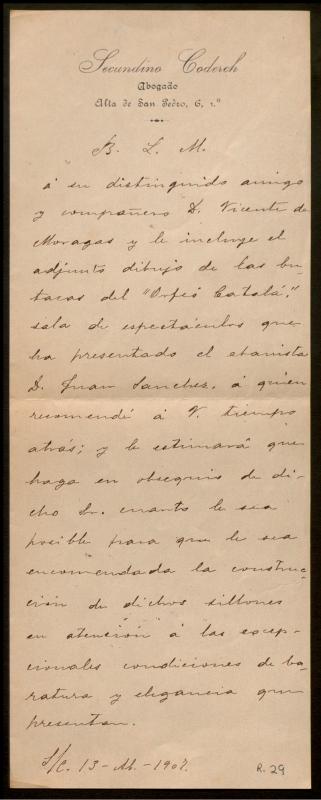 Secundino Coderch
Abogado
Alta de San Pedro, 6, 1.º
B. L. M.
á su distinguido amigo
y compañero D. Vicente de
Moragas y le incluye el
adjunto dibujo de las bu-
tacas del "Orfeó Catalá",
sala de espectáculos que
ha presentado el ebanista
D. Juan Sanchez, á quien
recomendé á V. tiempo
atrás; y le estimará que
haga en obsequio de di-
cho Sr. cuanto le sea
posible para que le sea
encomendada la construc-
ción de dichos sillones
en atención á las excep-
cionales condiciones de ba-
ratura y elegancia que
presentan.
S/C. 13 - Ab. - 1907.
R. 29